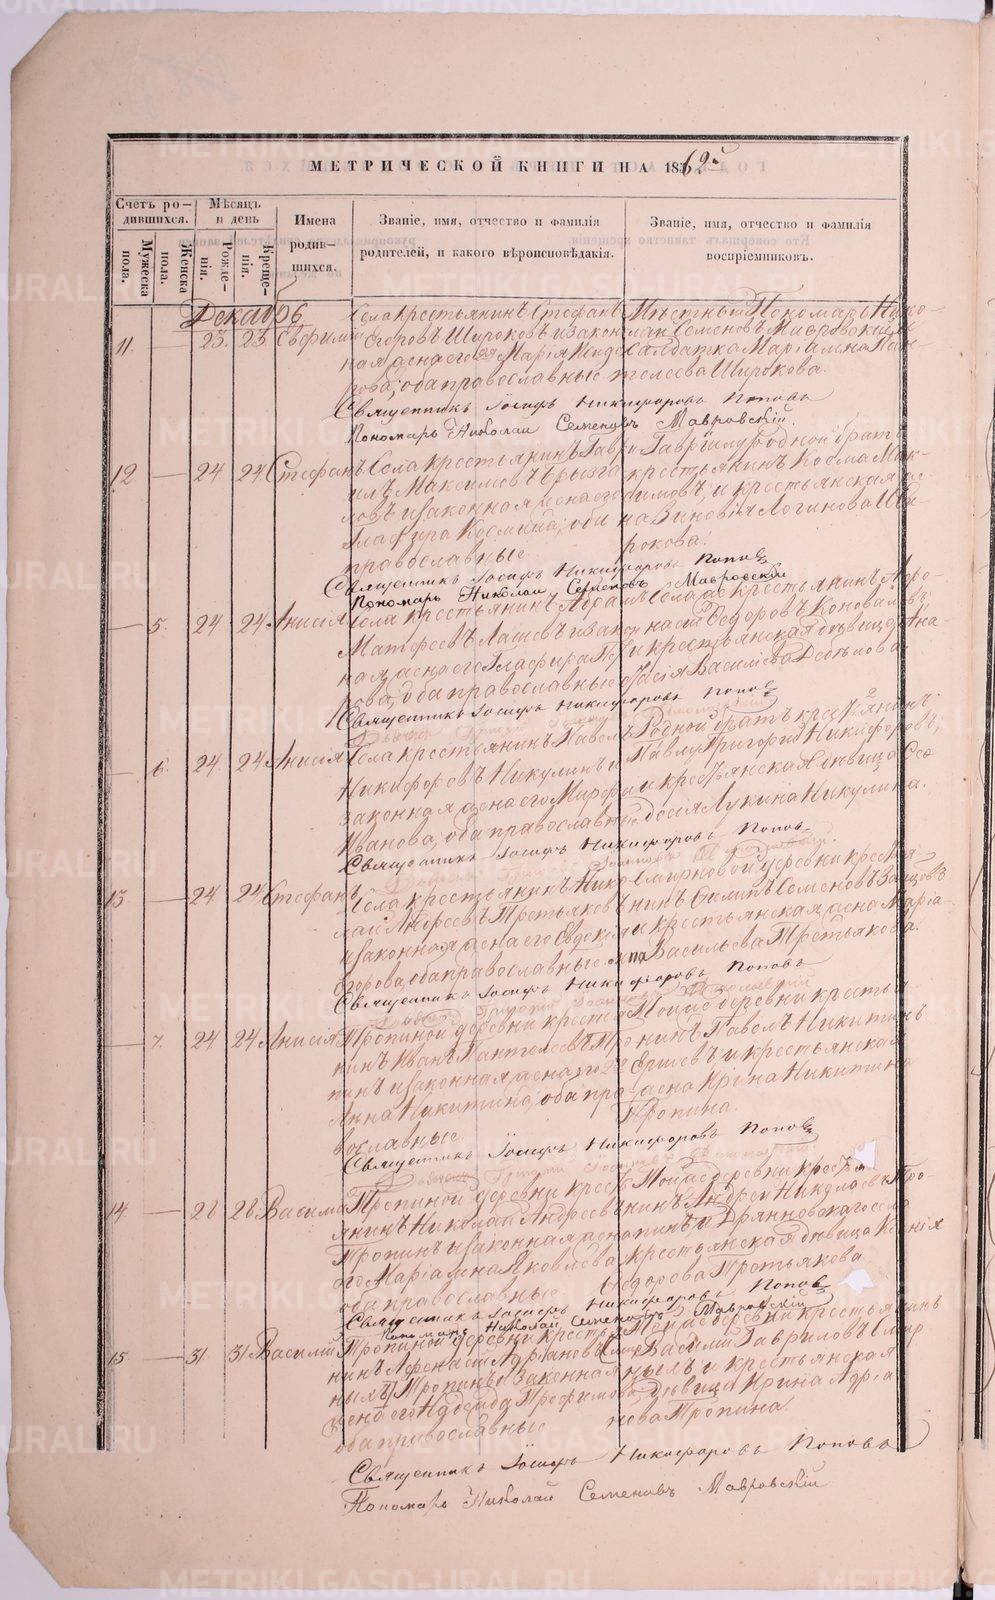 МЕТРИЧЕСКОЙ КНИГИ НА 1862й
Счетъ ро-
дившихся.
Мѣсяцъ
и день
Имена
родив-
шихся.
Званіе, имя, отчество и фамилія
родителей, и какого вѣроисповѣдакія.
Званіе, имя, отчество и фамилія
воспріемниковъ.
Мужеска
пола.
Женска
пола.
Рожде-
нія.
Креще-
нія.
Декабрь
11. — 23. 23 Евфимій
Села крестьянинъ Стефанъ
Егоровъ Широковъ и закон
ная жена его Марія
рова, оба православные
Мѣстный Пономарь Нико-
лай Семеновъ Мавровскій и
Салдатка Маріамна Пан-
телеева Широкова.
Священникъ Іосифъ Никифоровъ Поповъ
Пономарь Николай Семеновъ Мавровскій.
12 — 24 24 Стефанъ
Села крестьянинъ Гаври
илъ Максимовъ
ловъ и законная жена его
Глафира Космина, оба
православные
Гаврiилу родной братъ
крестьянинъ Косма Мак-
симовъ, и крестьянская же-
на Зиновія Логинова Ши-
рокова.
Священникъ Іосифъ Никифоровъ Поповъ
Пономарь Николай Семеновъ Мавровскій
— 5. 24 24 Анисія
Села крестьянинъ Абрамъ
Матфеевъ Лашевъ и закон
ная жена его Глафира Пет
рова, оба православные
Села крестьянинъ
Федоровъ Коноваловъ
и крестьянская дѣвица Ана-
стасія Василіева
Священникъ Іосифъ Никифоровъ Поповъ
— 6. 24. 24 Анисія
Села крестьянинъ Павелъ
Никифоровъ Никулинъ и
законная жена его Марфа
Иванова, оба православные
Родной братъ крестьянинъ
Павлу Григорій Никифоровъ,
и крестьянская дѣвица Фео
досія Лукина Никулина.
Священникъ Іосифъ Никифоровъ Поповъ
13. — 24 24 Стефанъ
Села крестьянинъ Нико
лай Андреевъ Третьяковъ
и законная жена его Евдокія
Егорова, оба православные.
Смирновой деревни крестья-
нинъ Филипъ Семеновъ Зайцовъ
и крестьянская жена Марія
Васильева Третьякова.
Священникъ Іосифъ Никифоровъ Поповъ
— 7. 24 24 Анисія
Тропиной деревни крестья
нинъ Иванъ Пантелеевъ Тро
пинъ и законная жена его
Анна Никитина, оба пра-
вославные
Тойже деревни крестья-
нинъ Павелъ Никитинъ
Ершевъ и крестьянская
жена Ирина Никитина
Тропина.
Священникъ Іосифъ Никифоровъ Поповъ
14 — 28 28 Василій
Тропиной деревни кресть
янинъ Николай Андреевъ
Тропинъ и законная жена
его Маріамна Яковлева
оба православные
Тойже деревни крестья
нинъ Андрей Николаевъ Тро-
пинъ, и Дрянновскаго села
крестьянская дѣвица Ксенія
Федорова Третьякова.
Священникъ Іосифъ Никифоровъ Поповъ
Пономарь Николай Семеновъ Мавровскій
15. — 31 31 Василій
Тропиной деревни крестья
нинъ Афонасій Адріановъ
Тропинъ и законная
жена его Надежда Трофимова,
оба православные
Тойже деревни крестьянинъ
Василій Гавриловъ Смир
ныхъ и крестьянская
дѣвица Ирина Адріа
нова Тропина.
Священникъ Іосифъ Никифоровъ Поповъ
Пономарь Николай Семеновъ Мавровскій
METRIKI.GASO-URAL.RU